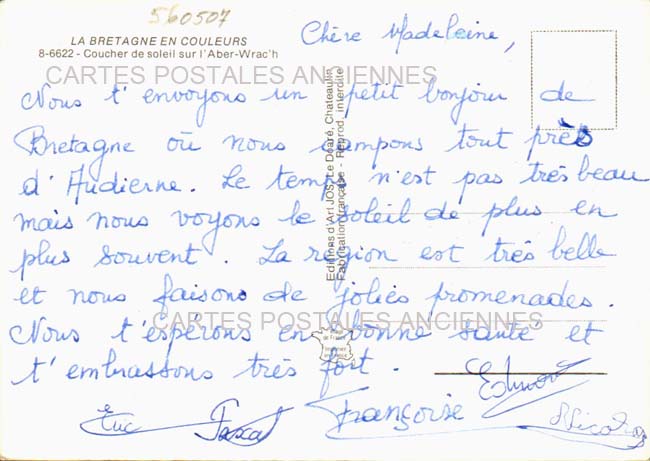 560507
LA BRETAGNE EN COULEURS
8-6622 - Coucher de soleil sur l'Aber-Wrac'h
Chère Madeleine,
CARTES POSTALES ANCIENNES
Nous t'envoyons un petit bonjour de
Bretagne où nous campons tout près
d'Audierne. Le temps n'est pas très beau
mais nous voyons le soleil de plus en
plus souvent. La région est très belle
et nous faisons de jolies promenades.
CARTES POSTALES ANCIENNES
Nous t'espérons en bonne santé et
t'embrassons très fort.
Luc Pascal Françoise Nicolas
Editions d'Art JOS Le Doaré, Chateaulin
Fabrication française - Reprod. interdite